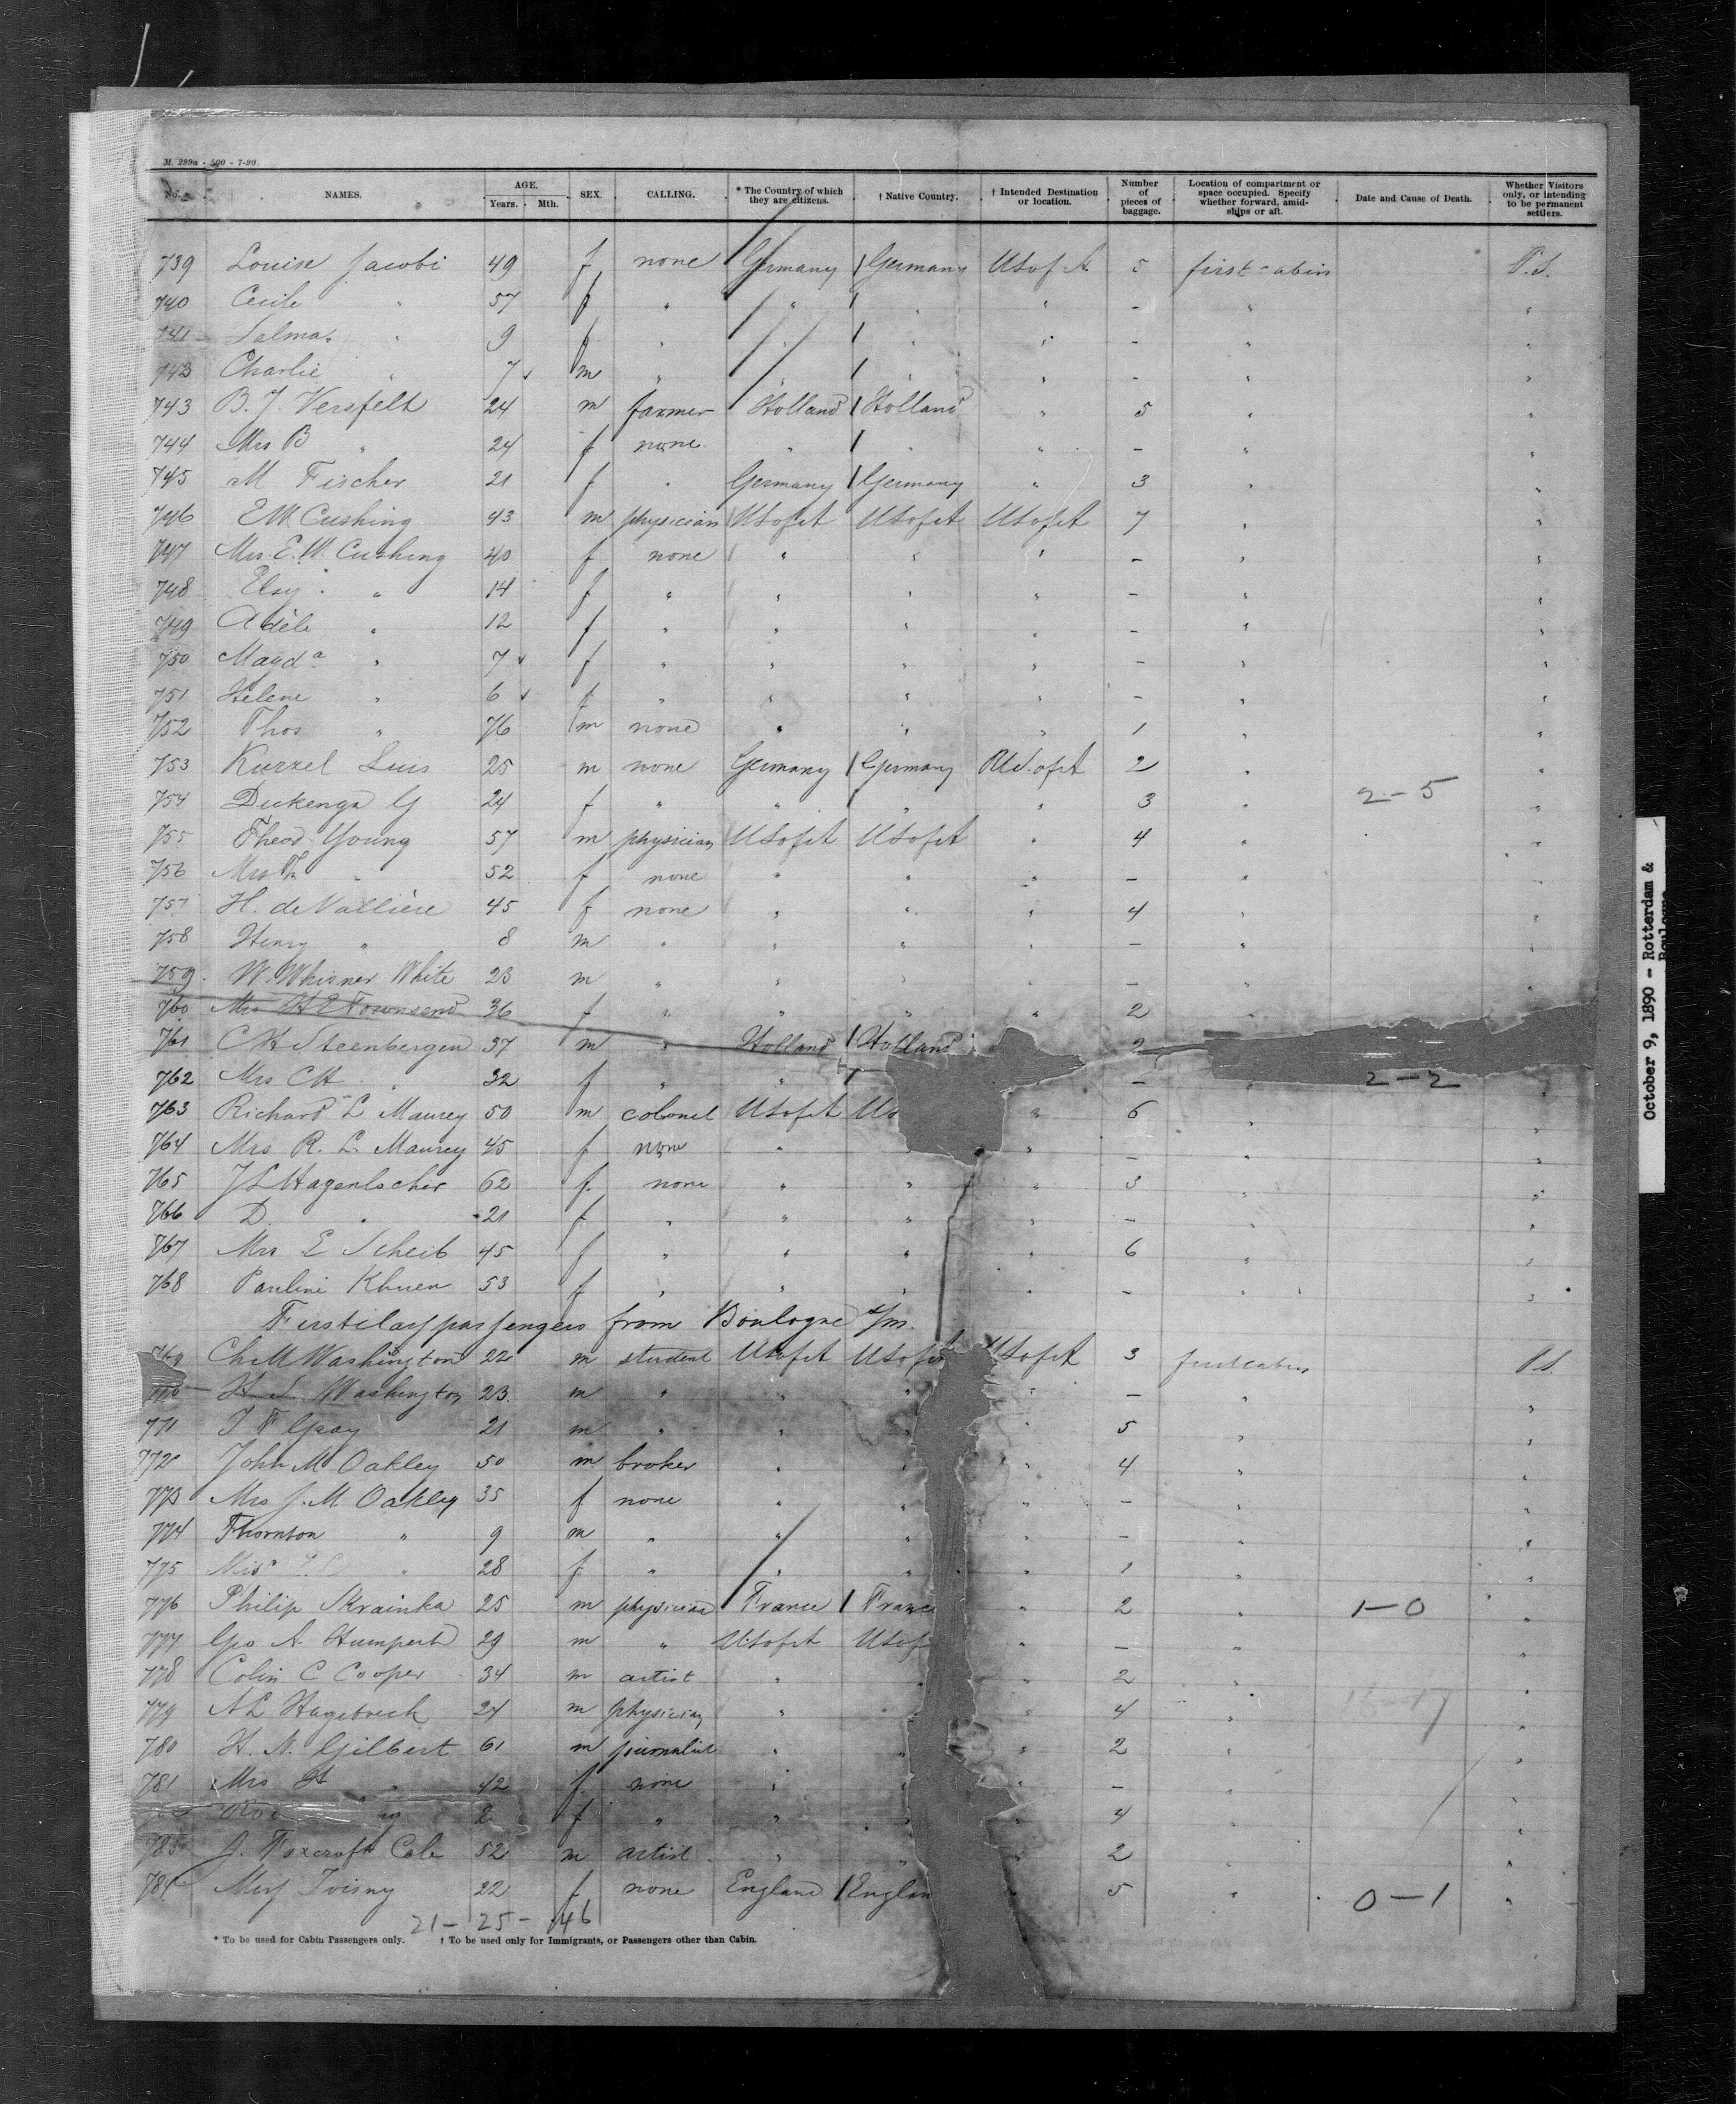 M. 299a - 500 - 7-90.
No. NAMES. AGE. Years. Mth. SEX. CALLING. * The Country of which they are citizens. † Native Country. † Intended Destination or location. Number of pieces of baggage. Location of compartment or space occupied. Specify whether forward, amidships or aft. Date and Cause of Death. Whether Visitors only, or intending to be permanent settlers.
739 Louise Jacobi 49 f none Germany Germany U S of A 5 first cabin P.S.
740 Cecile " 57 f " " " " - " "
741 Salma " 9 f " " " " - " "
742 Charlie " 7 m " " " " - " "
743 B. J. Versfelt 24 m farmer Holland Holland " 5 " "
744 Mrs B " 24 f none " " " - " "
745 M Fischer 21 f " Germany Germany " 3 " "
746 E W Cushing 43 m physician U S of A U S of A U S of A 7 " "
747 Mrs. E. W. Cushing 40 f none " " " - " "
748 Elsy " 14 f " " " " - " "
749 Adèle " 12 f " " " " - " "
750 Magda " 7 f " " " " - " "
751 Helene " 6 f " " " " - " "
752 Thos " 76 m none " " " 1 " "
753 Kurzel Luis 25 m none Germany Germany U S of A 2 " "
754 G 24 f " " " " 3 " 2-5 "
755 Theod Young 57 m physician U S of A U S of A " 4 " "
756 Mrs Th " 52 f none " " " - " "
757 H. de Vallière 45 f none " " " 4 " "
758 Henry " 8 m " " " " - " "
759 W. Whisner White 23 m " " " " - " "
760 Mrs H E Townsend 36 f " " " " 2 " "
761 C H Steenbergen 37 m " Holland Holland 2
762 Mrs C H " 32 f " " - 2-2 "
763 Richard L Maurey 50 m colonel U S of A Us " 6 " "
764 Mrs R. L. Maurey 45 f none " " " - " "
765 J L Hagenlocher 62 f none " " " 3 " "
766 D. " 21 f " " " " - " "
767 Mrs E Scheib 45 f " " " " 6 " "
768 Pauline Khuen 53 f " " " " - " "
First class passengers from Boulogne s/m.
769 Ch M Washington 22 m student U S of A U S of S of A 3 first cabin P.S.
770 H. S. Washington 23 m " " " " - " "
771 J F Gray 21 m " " " " 5 " "
772 John M Oakley 50 m broker " " " 4 " "
773 Mrs J. M Oakley 35 f none " " " - " "
774 Thornton " 9 m " " " " - " "
775 Miss " 28 f " " " " 1 " "
776 Philip Skrainka 25 m physician France France " 2 " 1-0 "
777 Geo A. Humpert 29 m " U S of A U S of " - " "
778 Colin C Cooper 34 m artist " " 2 " "
779 A L 24 m physician " " 4 " "
780 H. N. Gilbert 61 m journalist " " " 2 " "
781 Mrs H " 42 f none " " " - " "
2 f " " " " 4 " "
783 J. Foxcroft Cole 52 m artist " " " 2 " "
784 Miss 22 f none England Englan " 5 " 0-1 "
21 - 25 - 46
* To be used for Cabin Passengers only. † To be used only for Immigrants, or Passengers other than Cabin.
October 9, 1890 - Rotterdam &
Boulogne